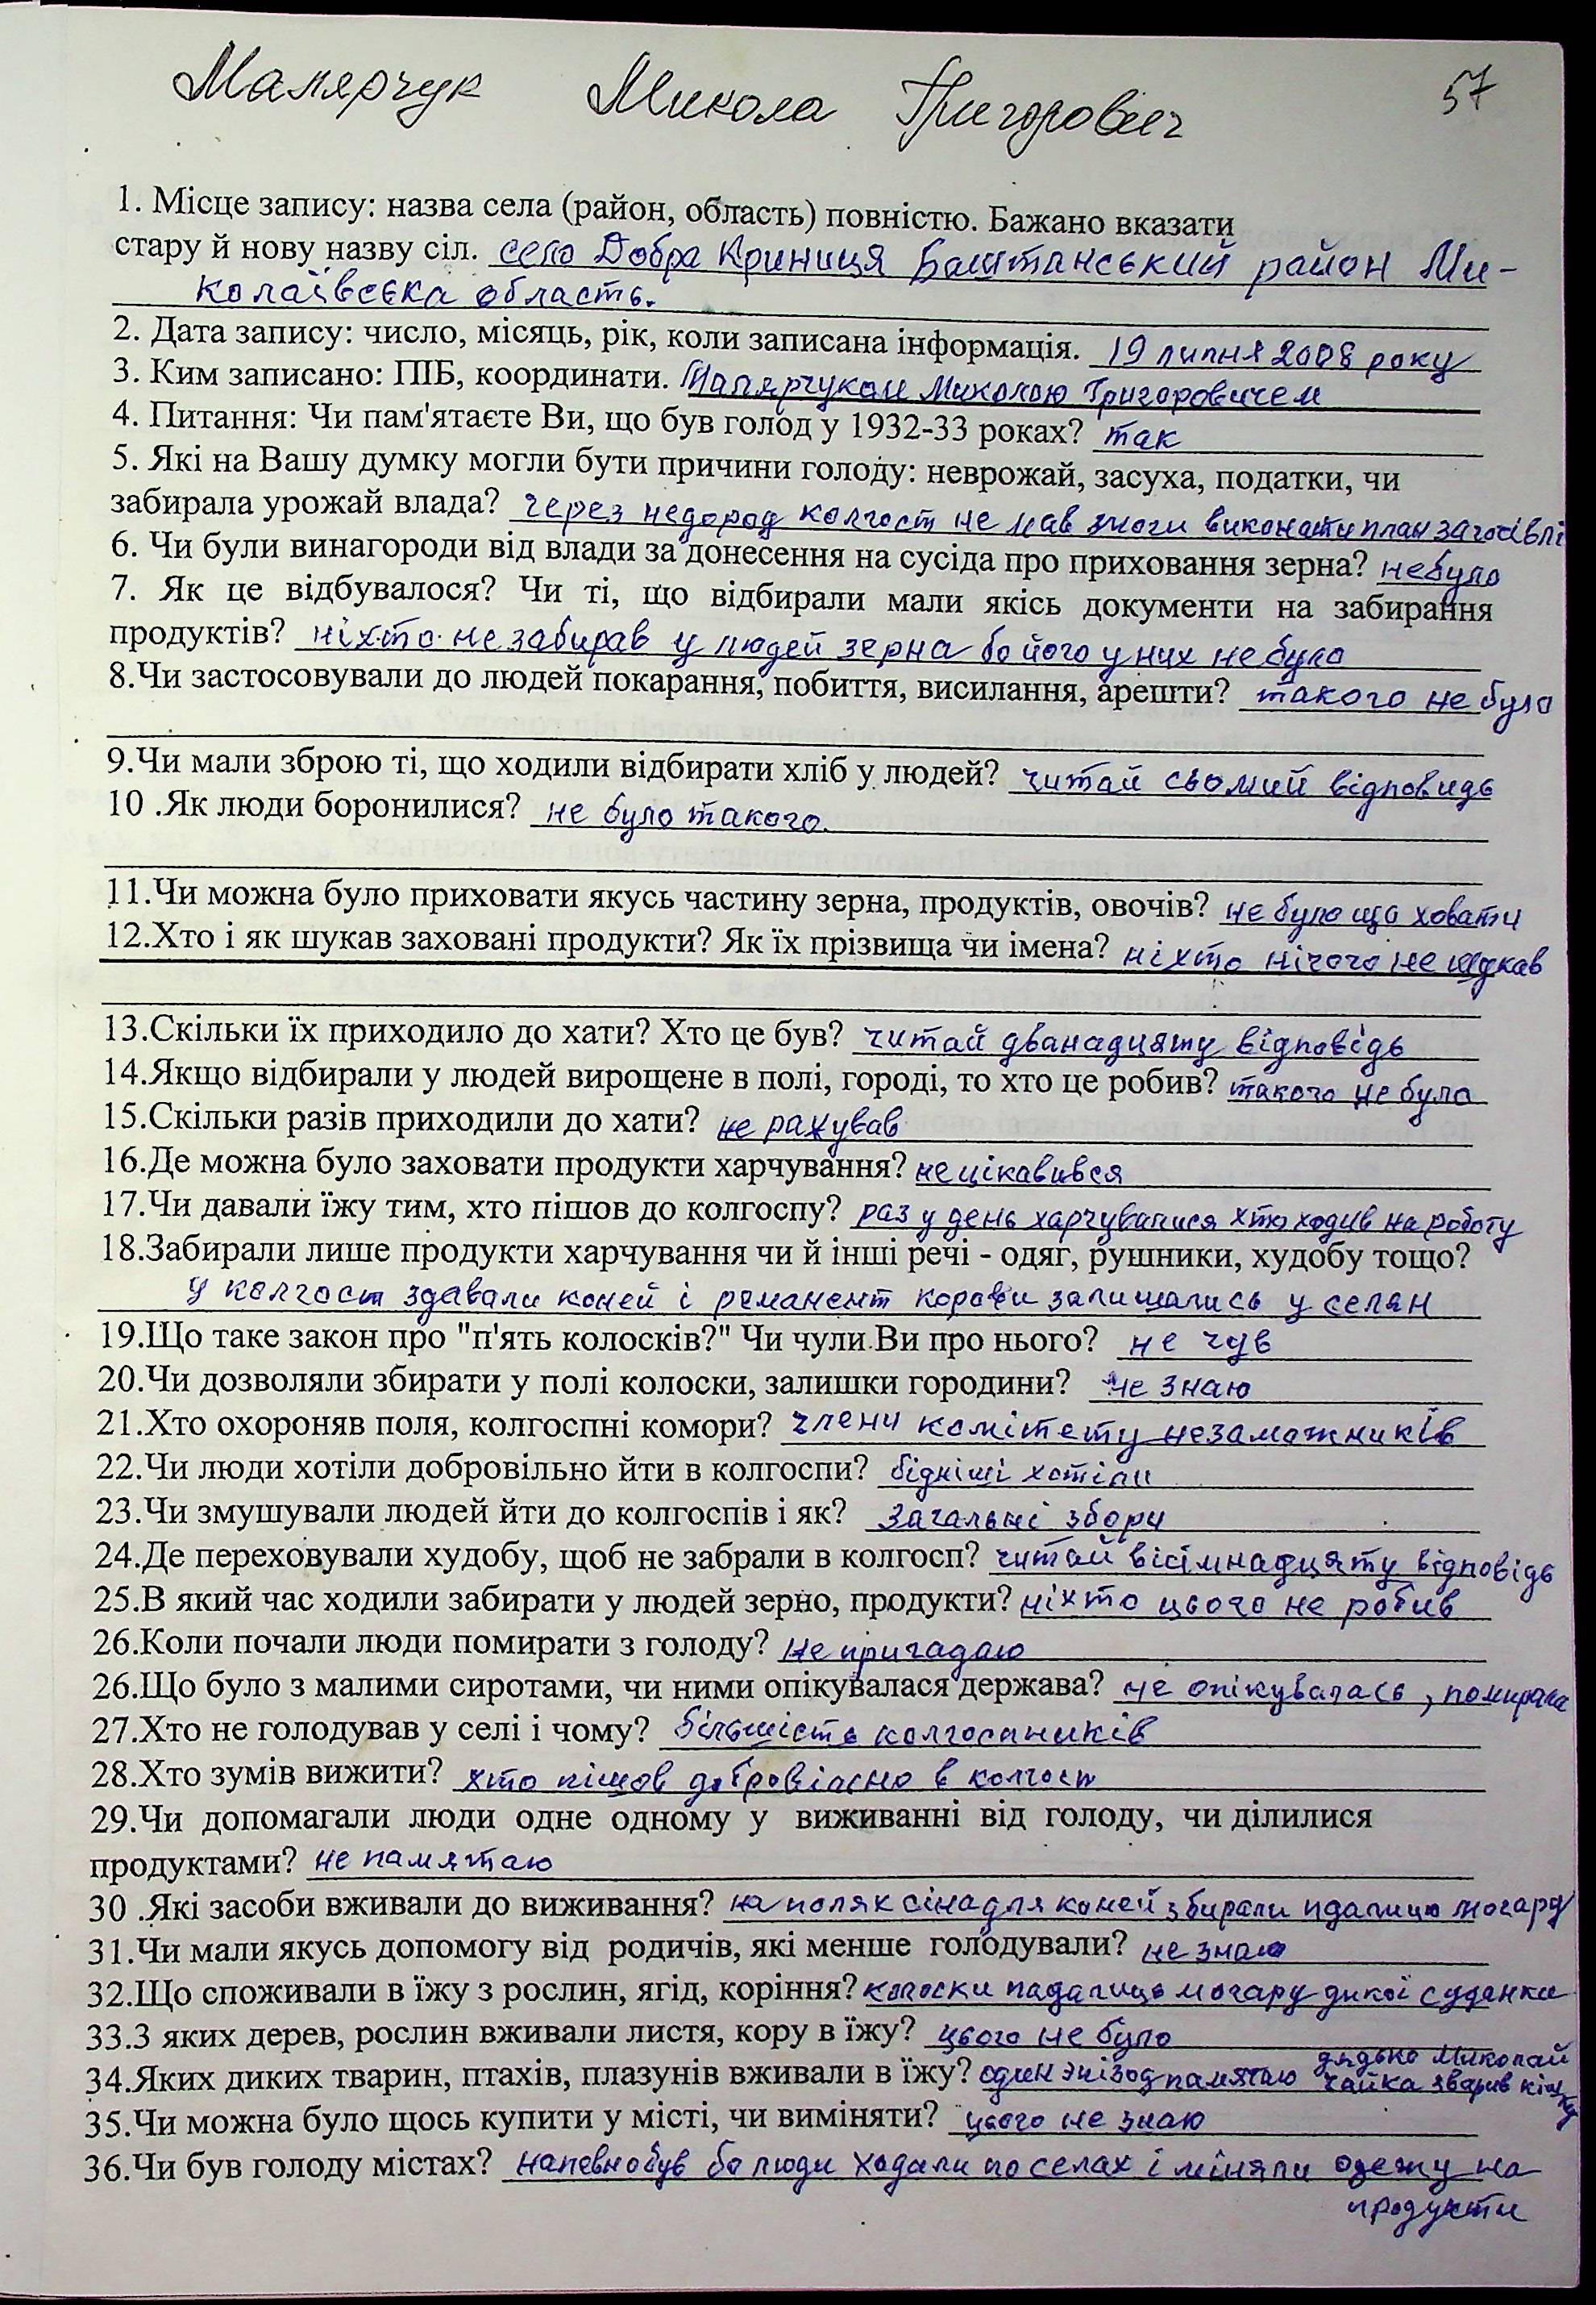 Малярчук Микола Григорович 57
1. Місце запису: назва села (район, область) повністю. Бажано вказати
стару й нову назву сіл. село Добра Криниця Баштанський район Ми-
колаївська область.
2. Дата запису: число, місяць, рік, коли записана інформація. 19 липня 2008 року
3. Ким записано: ПІБ, координати. Малярчуком Миколою Григоровичем
4. Питання: Чи пам'ятаєте Ви, що був голод у 1932-33 роках? так
5. Які на Вашу думку могли бути причини голоду: неврожай, засуха, податки, чи
забирала урожай влада? через недород колгосп не мав змоги виконати план заготівлі
6. Чи були винагороди від влади за донесення на сусіда про приховання зерна? небуло
7. Як це відбувалося? Чи ті, що відбирали мали якісь документи на забирання
продуктів? ніхто не забирав у людей зерна бо його у них не було
8.Чи застосовували до людей покарання, побиття, висилання, арешти? такого не було
9.Чи мали зброю ті, що ходили відбирати хліб у людей? читай сьомий відповидь
10 .Як люди боронилися? не було такого.
11.Чи можна було приховати якусь частину зерна, продуктів, овочів? не було що ховати
12.Хто і як шукав заховані продукти? Як їх прізвища чи імена? ніхто нічого не шукав
13.Скільки їх приходило до хати? Хто це був? читай дванадцяту відповідь
14.Якщо відбирали у людей вирощене в полі, городі, то хто це робив? такого не було
15.Скільки разів приходили до хати? не рахував
16.Де можна було заховати продукти харчування? не цікавився
17.Чи давали їжу тим, хто пішов до колгоспу? раз у день харчувалися хто ходив на роботу
18.Забирали лише продукти харчування чи й інші речі - одяг, рушники, худобу тощо?
у колгосп здавали коней і реманент корови залишались у селян
19.Що таке закон про "п'ять колосків?" Чи чули Ви про нього? не чув
20.Чи дозволяли збирати у полі колоски, залишки городини? не знаю
21.Хто охороняв поля, колгоспні комори? члени комітету незаможників
22.Чи люди хотіли добровільно йти в колгоспи? бідніші хотіли
23.Чи змушували людей йти до колгоспів і як? загальні збори
24.Де переховували худобу, щоб не забрали в колгосп? читай вісімнадцяту відповідь
25.В який час ходили забирати у людей зерно, продукти? ніхто цього не робив
26.Коли почали люди помирати з голоду? не пригадаю
26.Що було з малими сиротами, чи ними опікувалася держава? не опікувалась, помирала
27.Хто не голодував у селі і чому? більшість колгоспників
28.Хто зумів вижити? хто пішов добровільно в колгосп
29.Чи допомагали люди одне одному у виживанні від голоду, чи ділилися
продуктами? не памятаю
30 .Які засоби вживали до виживання? на полях сіна для коней збирали пдалицю могару
31.Чи мали якусь допомогу від родичів, які менше голодували? не знаю
32.Що споживали в їжу з рослин, ягід, коріння? колоски падалицю могару дикої суданки
33.З яких дерев, рослин вживали листя, кору в їжу? цього не було
34.Яких диких тварин, птахів, плазунів вживали в їжу? один эпізод памятаю дядько Миколай
чайка зварив кішку
35.Чи можна було щось купити у місті, чи виміняти? цього не знаю
36.Чи був голоду містах? напевно був бо люди ходали по селах і міняли одежу на
продукти